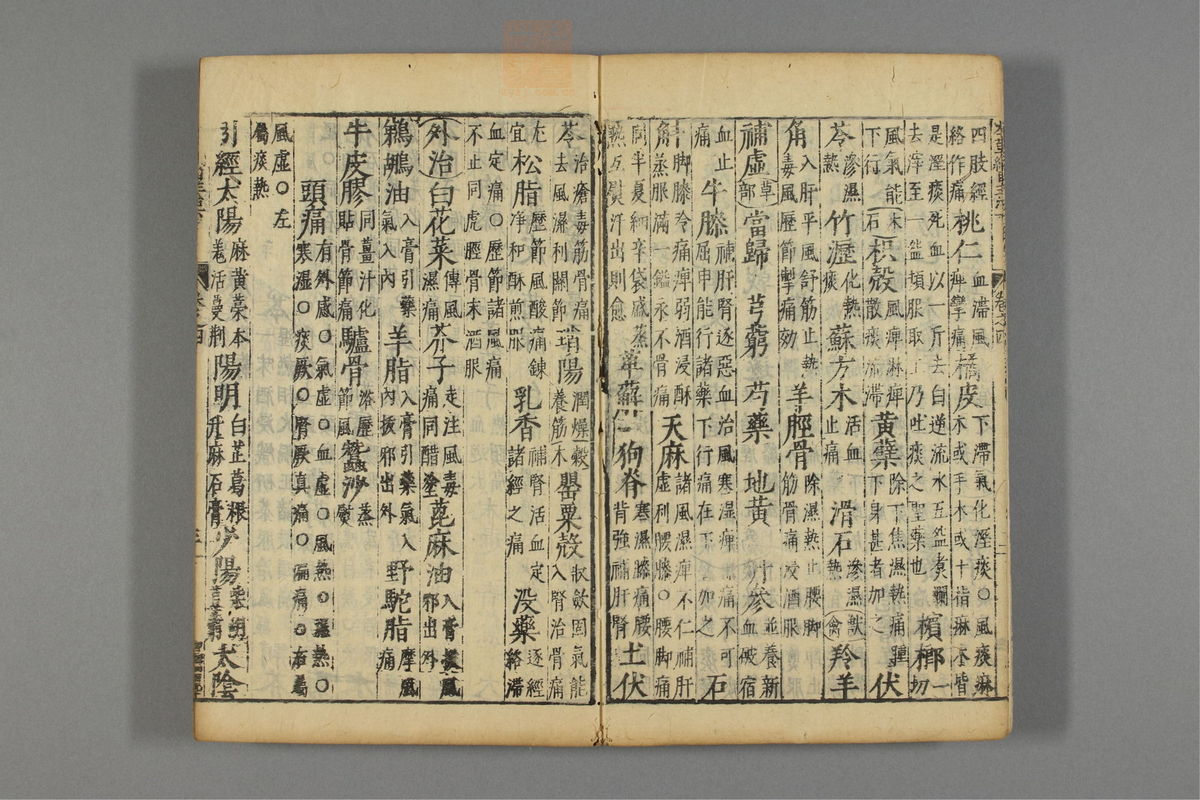 四肢經絡作痛桃仁血滯風痺攣痛橘皮下滯氣化溼痰○風痰麻木或手木或十指麻木皆
是溼痰死血以一斤去白逆流水五盌煮爛去滓至一盌頓服取吐乃吐痰之聖藥也檳榔一切
風氣能下行木石枳殼風痺淋痺散痰流滯黃蘗除下焦濕熱痛腫下身甚者加之伏
苓滲濕熱竹瀝化熱痰蘇方木活血止痛滑石滲濕熱獸禽羚羊
角入肝平風舒筋止熱毒風歷節掣痛効羊脛骨除濕熱止腰脚筋骨痛浸酒服
補虛草部當歸芎藭芍藥地黃丹參並養新血破宿
血止痛牛膝補肝腎逐惡血治風寒濕痺膝痛不可屈申能行諸藥下行痛在下加之石
脚膝冷痛痺弱酒浸酥蒸服滿一鎰永不骨痛天麻諸風濕痺不仁補肝虛利腰膝○腰脚痛
同半夏細辛袋盛蒸熱互熨汗出則愈萆薢狗脊寒濕膝痛腰背強補肝腎土伏
苓治瘡毒筋骨痛去風濕利關節瑣陽潤燥養筋穀木罌粟殼收斂固氣能入腎治骨痛
尤宜松脂歷節風酸痛鍊净和酥煎服乳香補腎活血定諸經之痛没藥逐經絡滯
血定痛○歷節諸風痛不止同虎脛骨末酒服
外治白花菜傳風濕痛芥子走注風毒痛同醋塗蓖麻油入膏拔風邪出外
鵜鶘油入膏引藥氣入内羊脂入膏引藥氣入内拔邪出外野駝脂摩風痛
牛皮膠同薑汁化貼骨節痛驢骨浴歷節風蠶沙蒸熨
頭痛有外感○氣虛○血虛○風熱○濕熱○寒濕○痰厥○腎厥真痛○偏痛○右屬
風虛○左屬痰熱
引經太陽麻黄藁本羗活蔓荆陽明白芷葛根升麻石膏少陽柴胡芎藭太陰